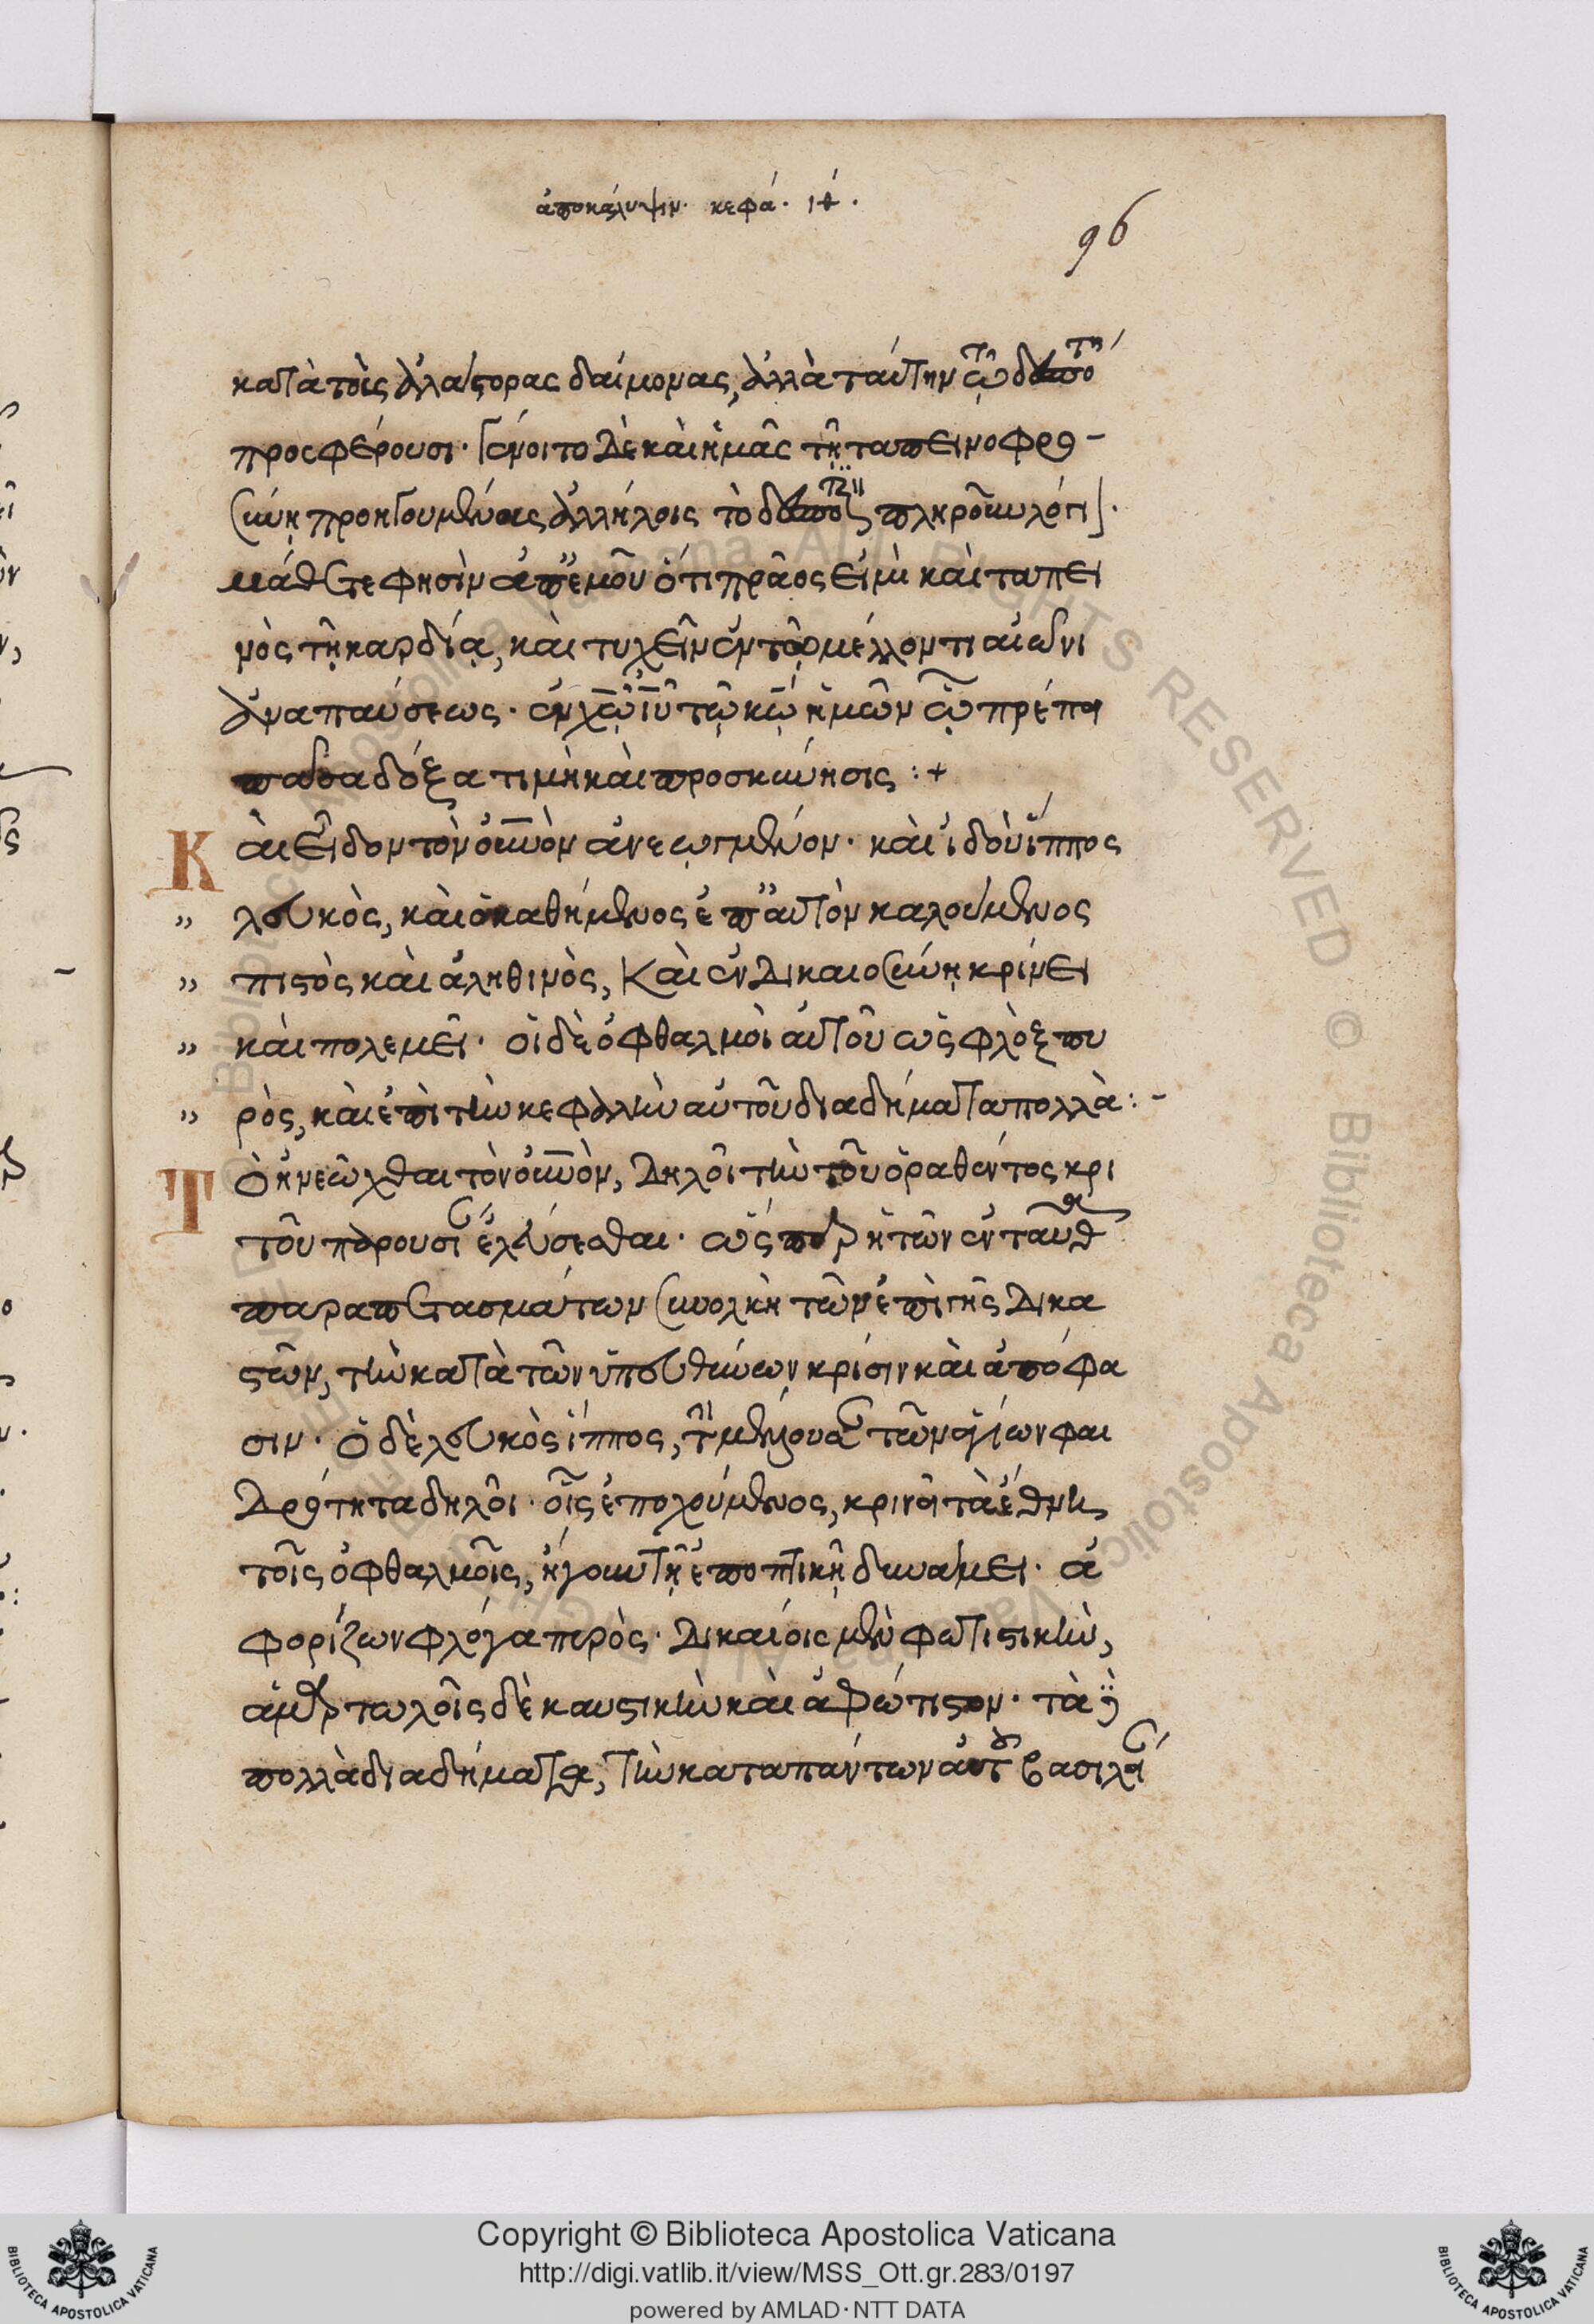 ἀποκάλυψιν. κεφά. ιθ.
96
κατὰ τοῖς ἀλάστορας δαίμονας, ἀλλὰ ταύτην τῶ δεσπότη
προσφέρουσι. γένοιτο δὲ καὶ ἡμᾶς τῆ ταπεινοφρο-
σύνη προηγουμένους ἀλλήλοις τὸ δεσποτικὸν πληροῦν λόγιον.
μάθετε φησὶν ἀπ' ἐμοῦ ὅτι πρᾶος εἰμὶ καὶ ταπει
νὸς τῆ καρδία, καὶ τυχεῖν ἐν τῶ μέλλοντι αἰῶνι
ἀναπαύσεως. ἐν χῶ ιῦ τῶ κῶ ἡμῶν ὧ πρέπει
πᾶσα δόξα τιμὴ καὶ προσκύνησις :+
Καὶ εἶδον τὸν οὐνον ἀνεωγμένον. καὶ ἰδοὺ ἵππος
λευκὸς, καὶ ὁ καθήμενος ἐπ' αὐτὸν καλούμενος
πιστὸς καὶ ἀληθινὸς, καὶ ἐν δικαιοσύνη κρίνει
καὶ πολεμεῖ. οἱ δὲ ὀφθαλμοὶ αὐτοῦ ὡς φλὸξ πυ
ρὸς, καὶ ἐπὶ τὴν κεφαλὴν αὐτοῦ διαδήματα πολλὰ :-
Τὸ ἠνεῶχθαι τὸν οὐνον, δηλοῖ τὴν τοῦ ὁραθέντος κρι
τοῦ παρουσίαν ἐλεύσεσθαι. ὥσπερ ἡ τῶν ἐνταῦθα
παραπετασμάτων συνολκὴ τῶν ἐπὶ γῆς δικα
στῶν, τὴν κατὰ τῶν ὑπευθύνων κρίσιν καὶ ἀπόφα
σιν. ὁ δὲ λευκὸς ἵππος, τὴν μέλλουσαν τῶν ἁγίων φαι
δρότητα δηλοῖ. οἷς ἐποχούμενος, κρινεῖ τὰ ἔθνη
τοῖς ὀφθαλμοῖς, ἤγουν τῆ ἐποπτικῆ δυνάμει. ἀ
φορίζων φλόγα πυρὸς. δικαίοις μὲν φωτιστικὴν,
ἁμαρτωλοῖς δὲ καυστικὴν καὶ ἀφώτιστον. τὰ δὲ
πολλὰ διαδήματα, τὴν κατα πάντων αὐτοῦ βασιλείαν
Copyright © Biblioteca Apostolica Vaticana
http://digi.vatlib.it/view/MSS_Ott.gr.283/0197
powered by AMLAD·NTT DATA